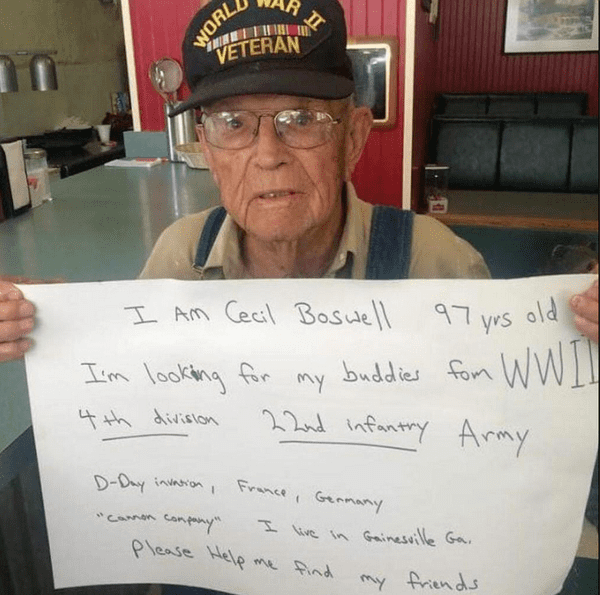 WORLD WAR II
VETERAN
I AM Cecil Boswell 97 yrs old
I'm looking for my buddies fom WWII
4th division 22nd infantry Army
D-Day invation, France, Germany
"Cannon company" I live in Gainesville Ga.
Please Help me find my friends